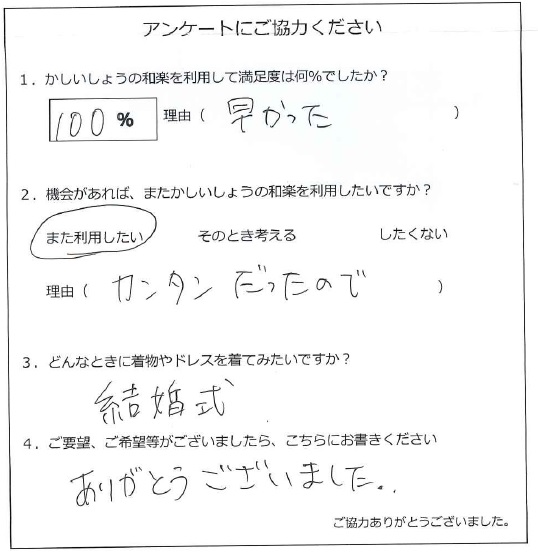 アンケートにご協力ください
1．かしいしょうの和楽を利用して満足度は何%でしたか？
100 % 理由（ 早かった ）
2．機会があれば、またかしいしょうの和楽を利用したいですか？
また利用したい そのとき考える したくない
理由（ カンタンだったので ）
3．どんなときに着物やドレスを着てみたいですか？
結婚式
4．ご要望、ご希望等がございましたら、こちらにお書きください
ありがとうございました。.
ご協力ありがとうございました。